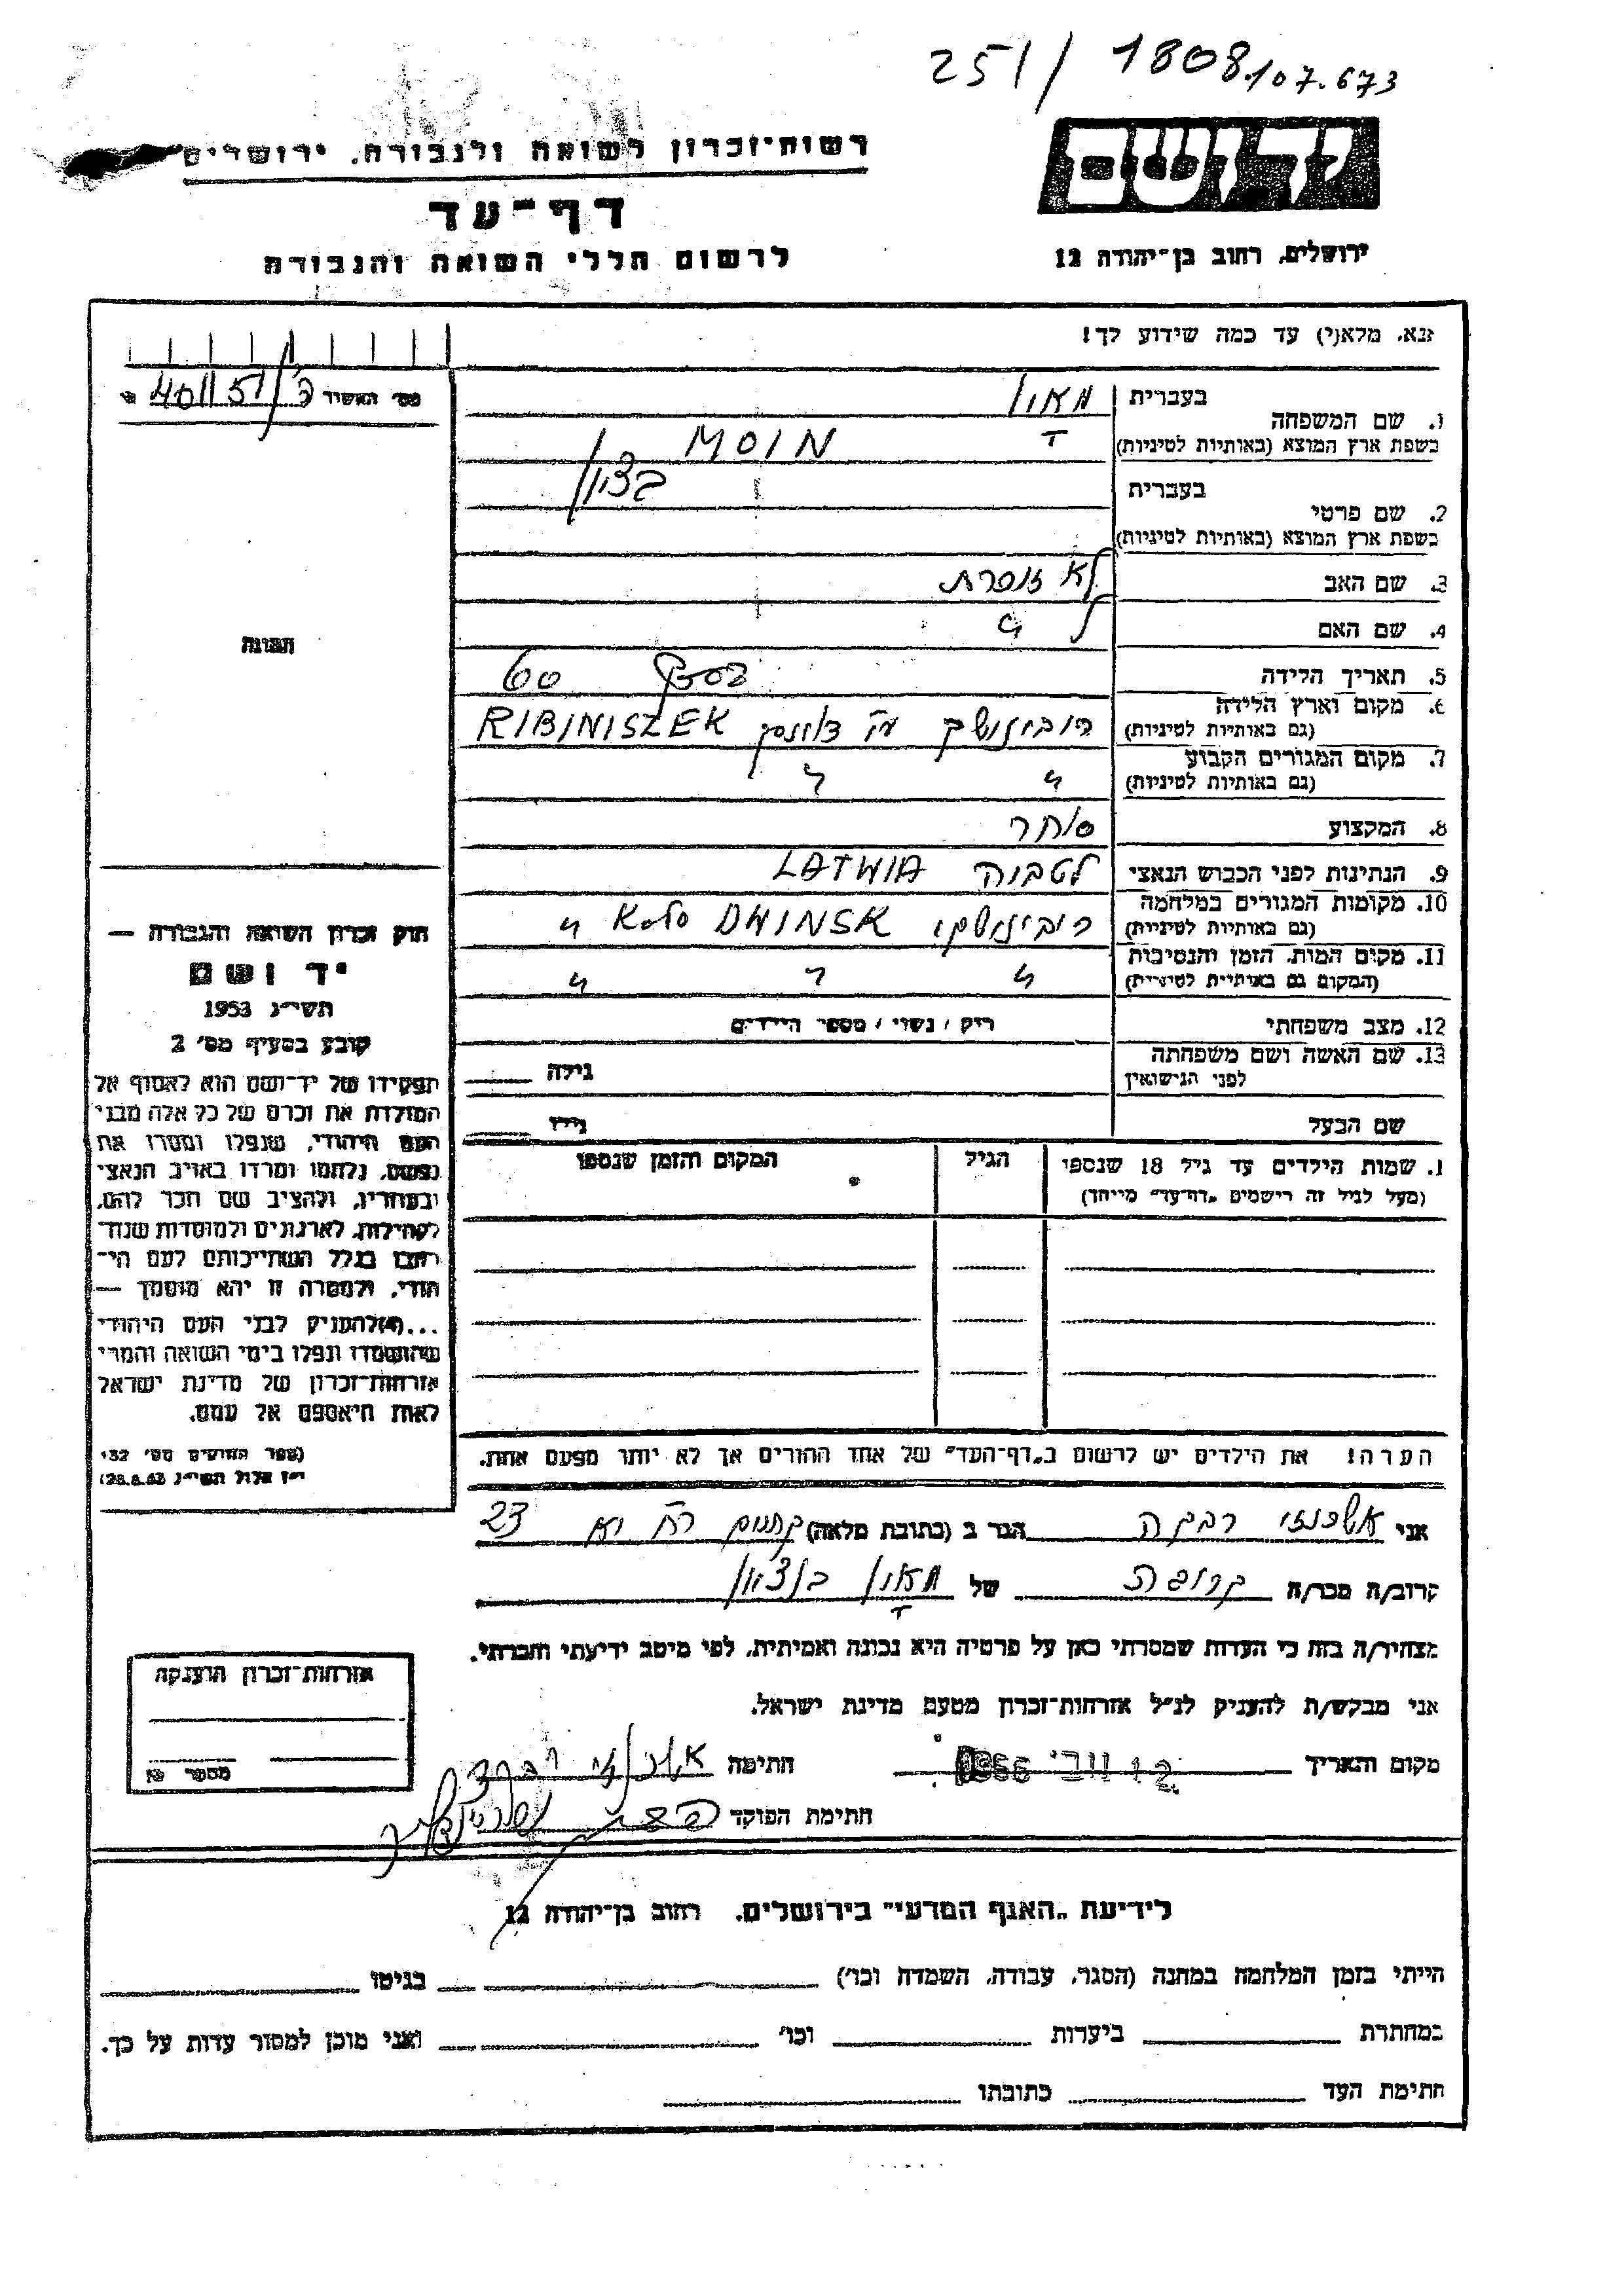 251/1808 107.673
רשות־זכרון לשואה ולגבורה, ירושלים
יד ושם
דף־עד
לרשום חללי השואה והגבורה
ירושלים, רחוב בן־יהודה 12
נא, מלא(י) עד כמה שידוע לך!
מס׳ האשיר
1. שם המשפחה
בעברית
בשפת ארץ המוצא (באותיות לטיניות)
MOIN
2. שם פרטי
בעברית
בשפת ארץ המוצא (באותיות לטיניות)
3. שם האב לא זוכרת
4. שם האם
5. תאריך הלידה 60
6. מקום וארץ הלידה
(גם באותיות לטיניות)
RIBINISZEK
7. מקום המגורים הקבוע
(גם באותיות לטיניות)
8. המקצוע סוחר
9. הנתינות לפני הכבוש הנאצי לטביה LATWIA
10. מקומות המגורים במלחמה
(גם באותיות לטיניות)
KOLO DWINSK
11. מקום המות, הזמן והנסיבות
(המקום גם באותיות לטיניות)
12. מצב משפחתי רוק / נשוי / מספר הילדים
13. שם האשה ושם משפחתה
לפני הנישואין
גילה
שם הבעל גילו
תמונה
חוק זכרון השואה והגבורה —
יד ושם
תשי״ג 1953
קובע בסעיף מס׳ 2
תפקידו של יד־ושם הוא לאסוף אל
המולדת את זכרם של כל אלה מבני
העם היהודי, שנפלו ומסרו את
נפשם, נלחמו ומרדו באויב הנאצי
ובעוזריו, ולהציב שם וזכר להם,
לקהילות, לארגונים ולמוסדות שנח־
רבו בגלל השתייכותם לעם הי־
הודי, ולמטרה זו יהא מוסמך —
...(ו)להעניק לבני העם היהודי
שהושמדו ונפלו בימי השואה והמרי
אזרחות־זכרון של מדינת ישראל
לאות היאספם אל עמם.
(ספר החוקים מס׳ 132
י״ז אלול תשי״ג 28.8.53)
1. שמות הילדים עד גיל 18 שנספו
(מעל לגיל זה רישמים „דף־עד״ מיוחד)
הגיל
המקום והזמן שנספו
הערה! את הילדים יש לרשום ב„דף־העד״ של אחד ההורים אך לא יותר מפעם אחת.
אני אשכנזי רבקה הגר ב (כתובת מלאה) 23
קרוב/ה מכר/ה קרובה של בן ציון
מצהיר/ה בזה כי העדות שמסרתי כאן על פרטיה היא נכונה ואמיתית, לפי מיטב ידיעתי והכרתי.
אני מבקש/ת להעניק לנ״ל אזרחות־זכרון מטעם מדינת ישראל.
מקום ותאריך 12 נוב׳ חתימה
חתימת הפוקד
אזרחות־זכרון הוענקה
מספר
לידיעת „האגף המדעי״ בירושלים, רחוב בן־יהודה 12
הייתי בזמן המלחמה במחנה (הסגר, עבודה, השמדה וכו׳) בגיטו
במחתרת ביערות וכו׳ ואני מוכן למסור עדות על כך.
חתימת העד כתובתו